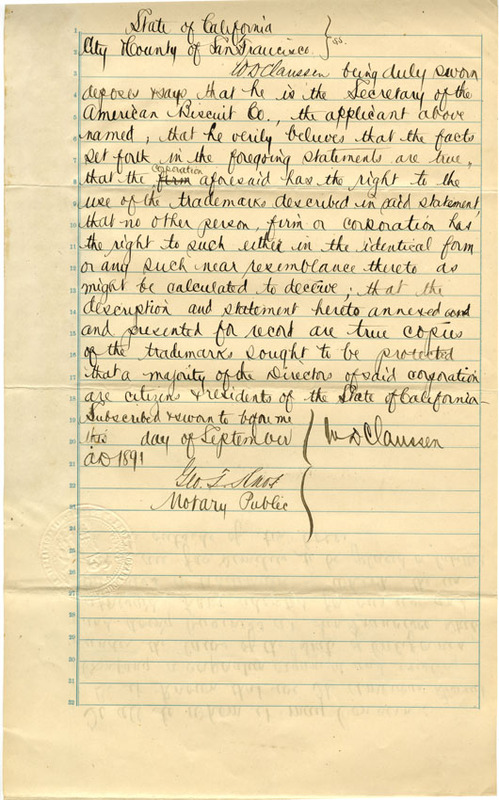 State of California
City & County of San Francisco } ss.
W D Claussen being duly sworn
deposes & says that he is the Secretary of the
American Biscuit Co., the applicant above
named, that he verily believes that the facts
set forth in the foregoing statements are true,
corporation
that the firm aforesaid has the right to the
use of the trademarks described in said statement,
that no other person, firm or corporation has
the right to such either in the identical form
or any such near resemblance thereto as
might be calculated to deceive; that the
description and statement hereto annexed and
and presented for record are true copies
of the trademarks sought to be protected
that a majority of the Directors of said corporation
are citizens & residents of the State of California—
Subscribed & sworn to before me
this day of September
AD 1891
W D Claussen
Geo. T. Knox
Notary Public